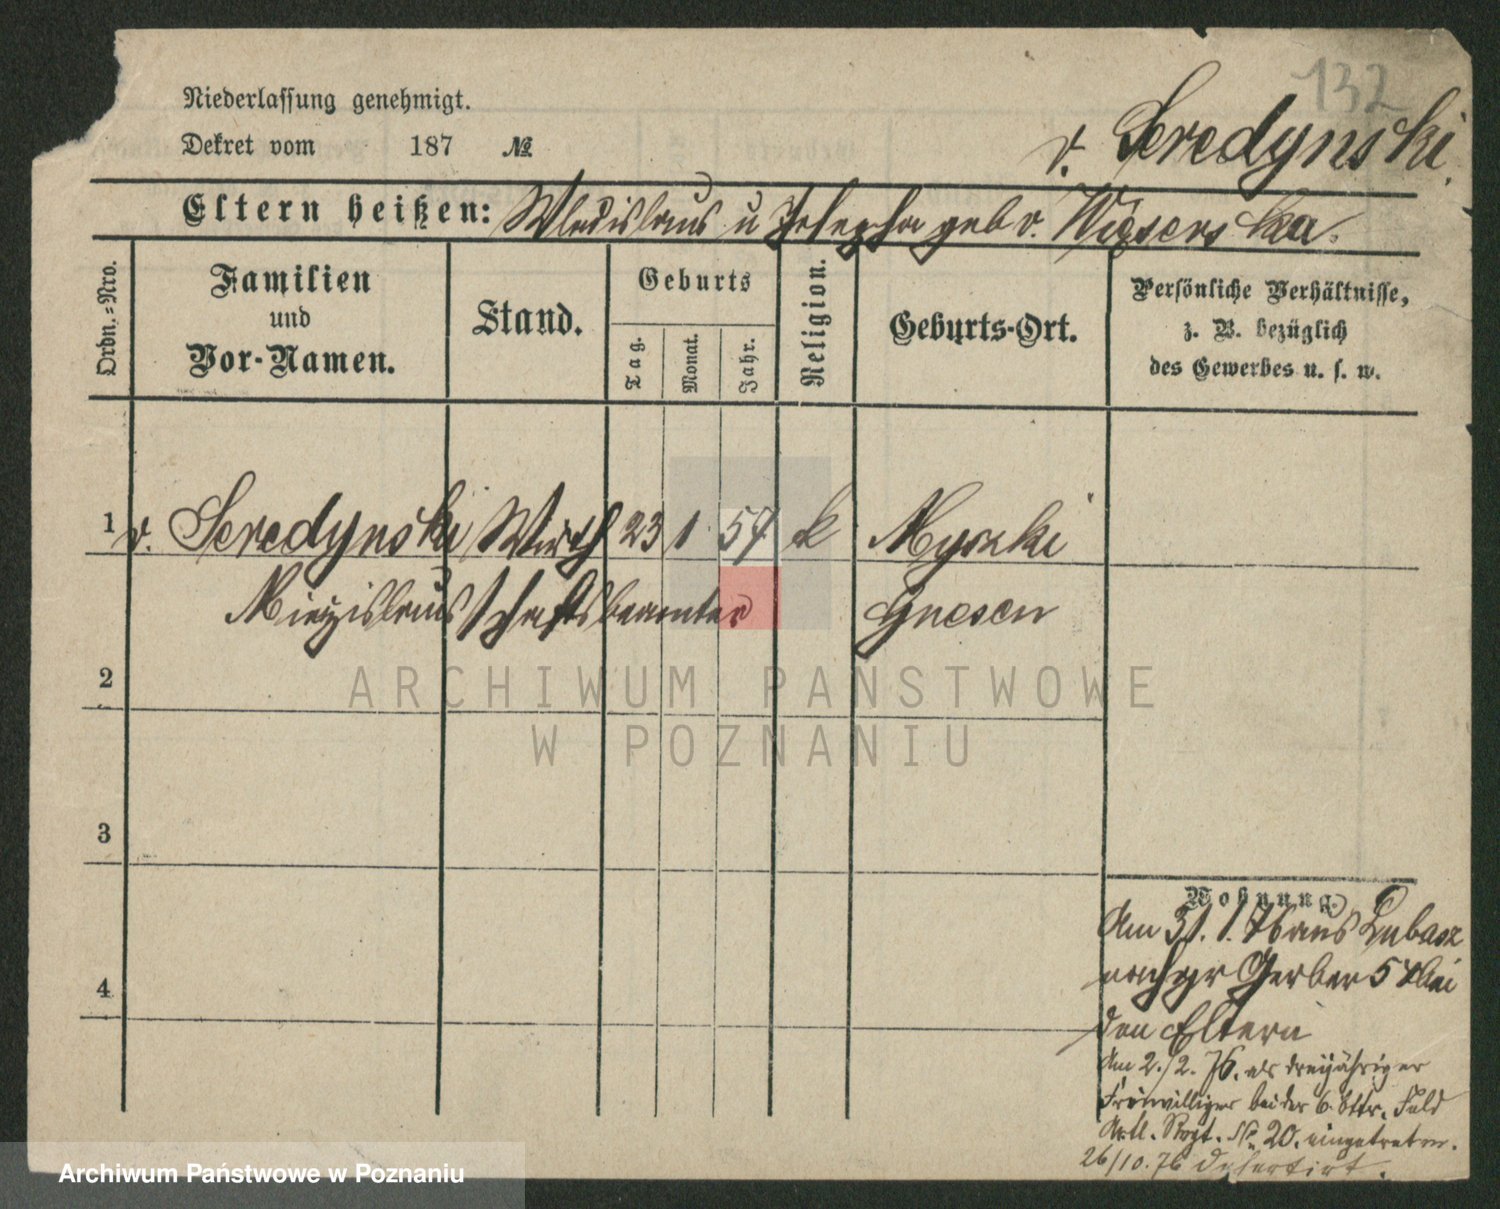 132
Niederlassung genehmigt.
Dekret vom 187 №
v. Seredynski.
Eltern heißen: Wladislaus u Josepha geb v. Wigserska.
Ordn.-Nro.
Familien und Vor-Namen.
Stand.
Geburts
Tag. Monat. Jahr.
Religion.
Geburts-Ort.
Persönliche Verhältnisse,
z. B. bezüglich
des Gewerbes u. s. w.
1 v. Seredynski Wirth 23 1 57 k Myszki
Miezislaus schaftsbeamter Gnesen
2
3
4
Wohnung.
Am 31. 1. 76 aus Lubasz
nach gr Gerber 5 bei
den Eltern
Am 2./2. 76. als dreijähriger
Freiwilliger bei der 6. Bttr. Feld
Artl. Regt. № 20. eingetreten.
26/10. 76 desertirt.
ARCHIWUM PAŃSTWOWE
W POZNANIU
Archiwum Państwowe w Poznaniu